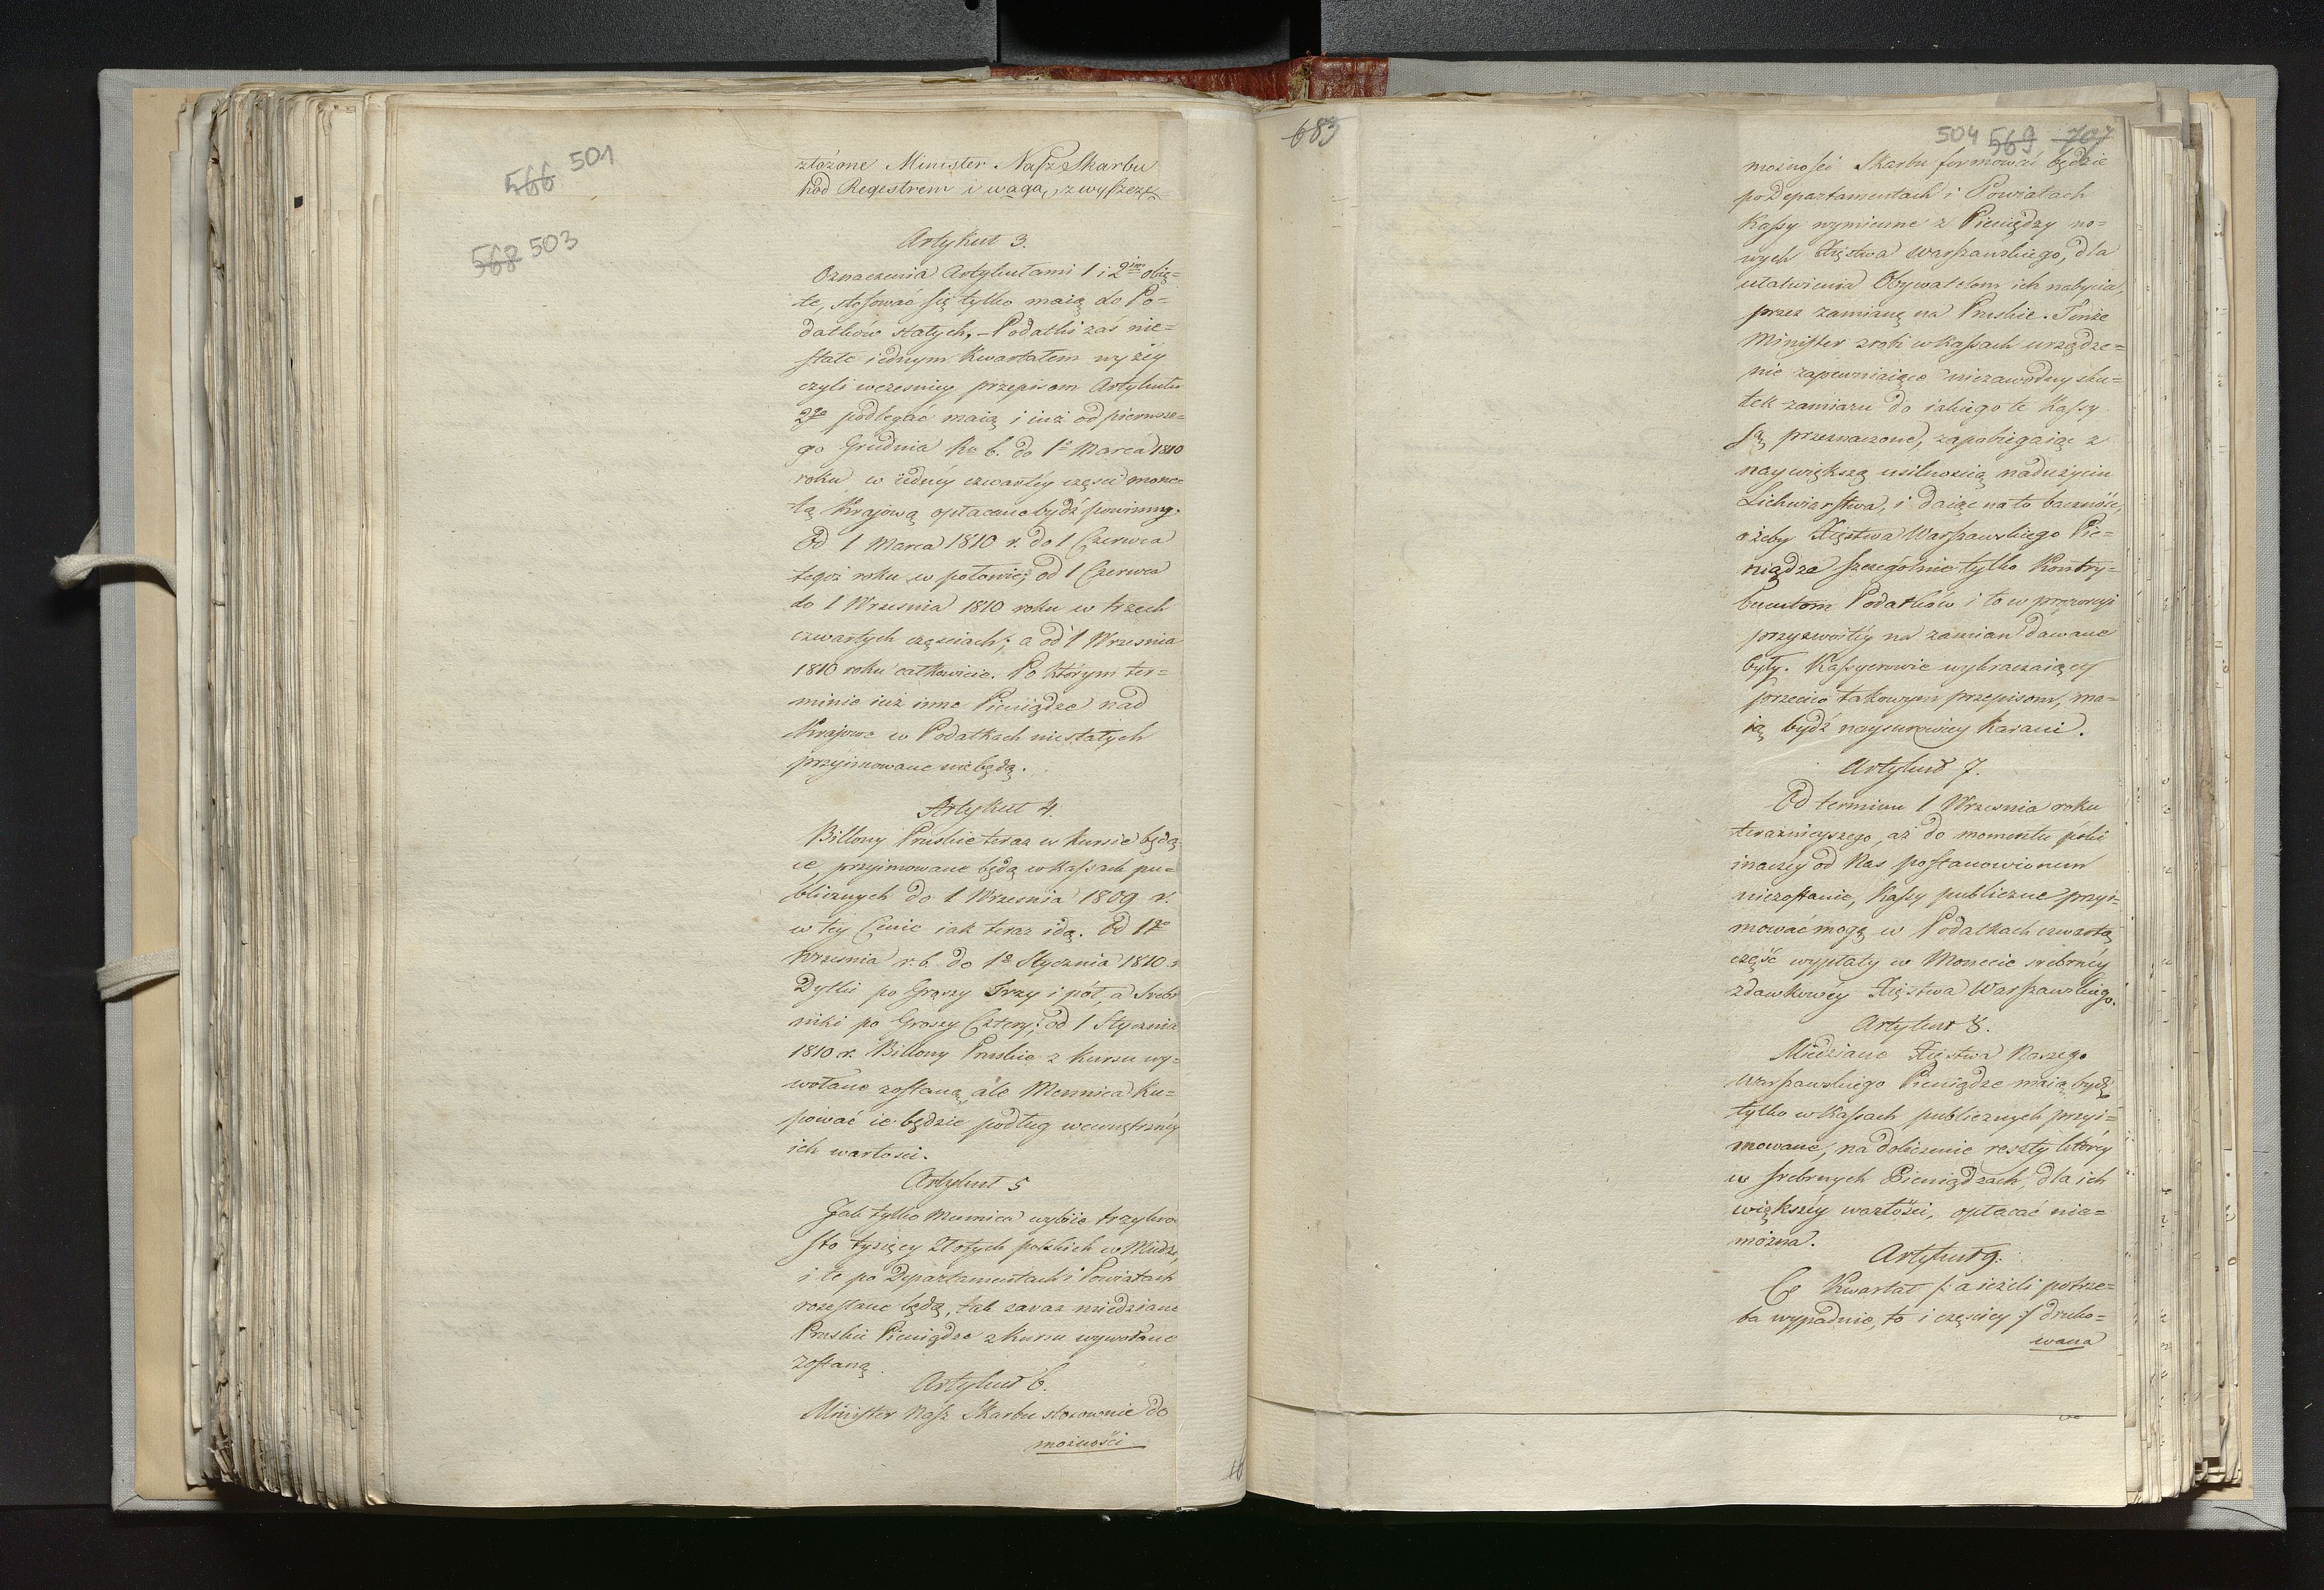 566 501
złożone Minister Nasz Skarbu
pod Regestrem i wagą, zwyszczę
568 503
Artykuł 3.
Oznaczenia Artykułami 1 i 2im obię=
te, stosować się tylko maią do Po=
datków stałych. – Podatki zaś nie=
stałe iednym Kwartałem wyżéy
czyli wcześniéy przepisom Artykułu
2go podlegać maią i iuż od pierwsze=
go Grudnia Rr. b. do 1o Marca 1810
roku w iednéy czwartéy części mone=
tą Krajową opłacane bydź powinny.
Od 1 Marca 1810 r. do 1 Czerwca
tegoż roku w połowie; od 1 Czerwca
do 1 Września 1810 roku w trzech
czwartych częściach; a od 1 Września
1810 roku całkowicie. Po którym ter=
minie iuż inne Pieniądze nad
Krajowe w Podatkach niestałych
przyimowane niebędą.
Artykuł 4.
Billony Pruskie teraz w kursie będą
ce, przyimowane będą w Kassach pu=
blicznych do 1 Września 1809 r.
w téy Cenie iak teraz idą. Od 1go
Września r. b. do 1o Stycznia 1810 r
Dytki po Groszy Trzy i pół, a Srebr
niki po Groszy Cztery; od 1 Stycznia
1810 r. Billony Pruskie z kursu wy=
wołane zostaną, ale Mennica Ku=
pować ie będzie podług wewnętrznéy
ich wartości.
Artykuł 5
Jak tylko Mennica wybiie trzykro
sto tysięcy Złotych polskich w Miedzi,
i te po Departamentach i Powiatach
rozesłane będą, tak zaraz miedziane
Pruskie Pieniądze z kursu wywołane
zostaną.
Artykuł 6.
Minister Nasz Skarbu stosownie do
możności
683
504 569 707
możności Skarbu formować będzie
po Departamentach i Powiatach
Kassy wymienne z Pieniędzy no=
wych Xięstwa Warszawskiego, dla
ułatwienia Obywatelom ich nabycia,
przez zamianę na Pruskie. Tenże
Minister zrobi w Kassach urządze=
nie zapewniaiące niezawodny sku=
tek zamiaru do iakiego te Kassy
są przeznaczone, zapobiegaiąc z
naywiększą usilnością nadużyciu
Lichwiarstwa, i daiąc na to baczność,
ażeby Xięstwa Warszawskiego Pie=
niądze szczególnie tylko Kontry=
buentom Podatków i to w proporcyi
przyzwoitéy na zamian dawane
były. Kassyerowie wykraczaiący
przeciw takowym przepisom, ma=
ią bydź naysurowiéy karani.
Artykuł 7.
Od terminu 1 Września roku
teraźnieyszego, aż do momentu póki
inaczéy od Nas postanowionem
niezostanie, Kassy publiczne przyi=
mować mogą w Podatkach czwartą
część wypłaty w Monecie srebrnéy
zdawkowéy Xięstwa Warszawskiego.
Artykuł 8.
Miedziane Xięstwa Naszego
Warszawskiego Pieniądze maią bydź
tylko w Kassach publicznych przyi=
mowane, na doliczenie reszty któréy
w srebrnych Pieniądzach, dla ich
większéy wartości, opłacać nie=
można.
Artykuł 9.
Co Kwartał /: a ieżeli potrze=
ba wypadnie, to i częściey :/ druko=
wana